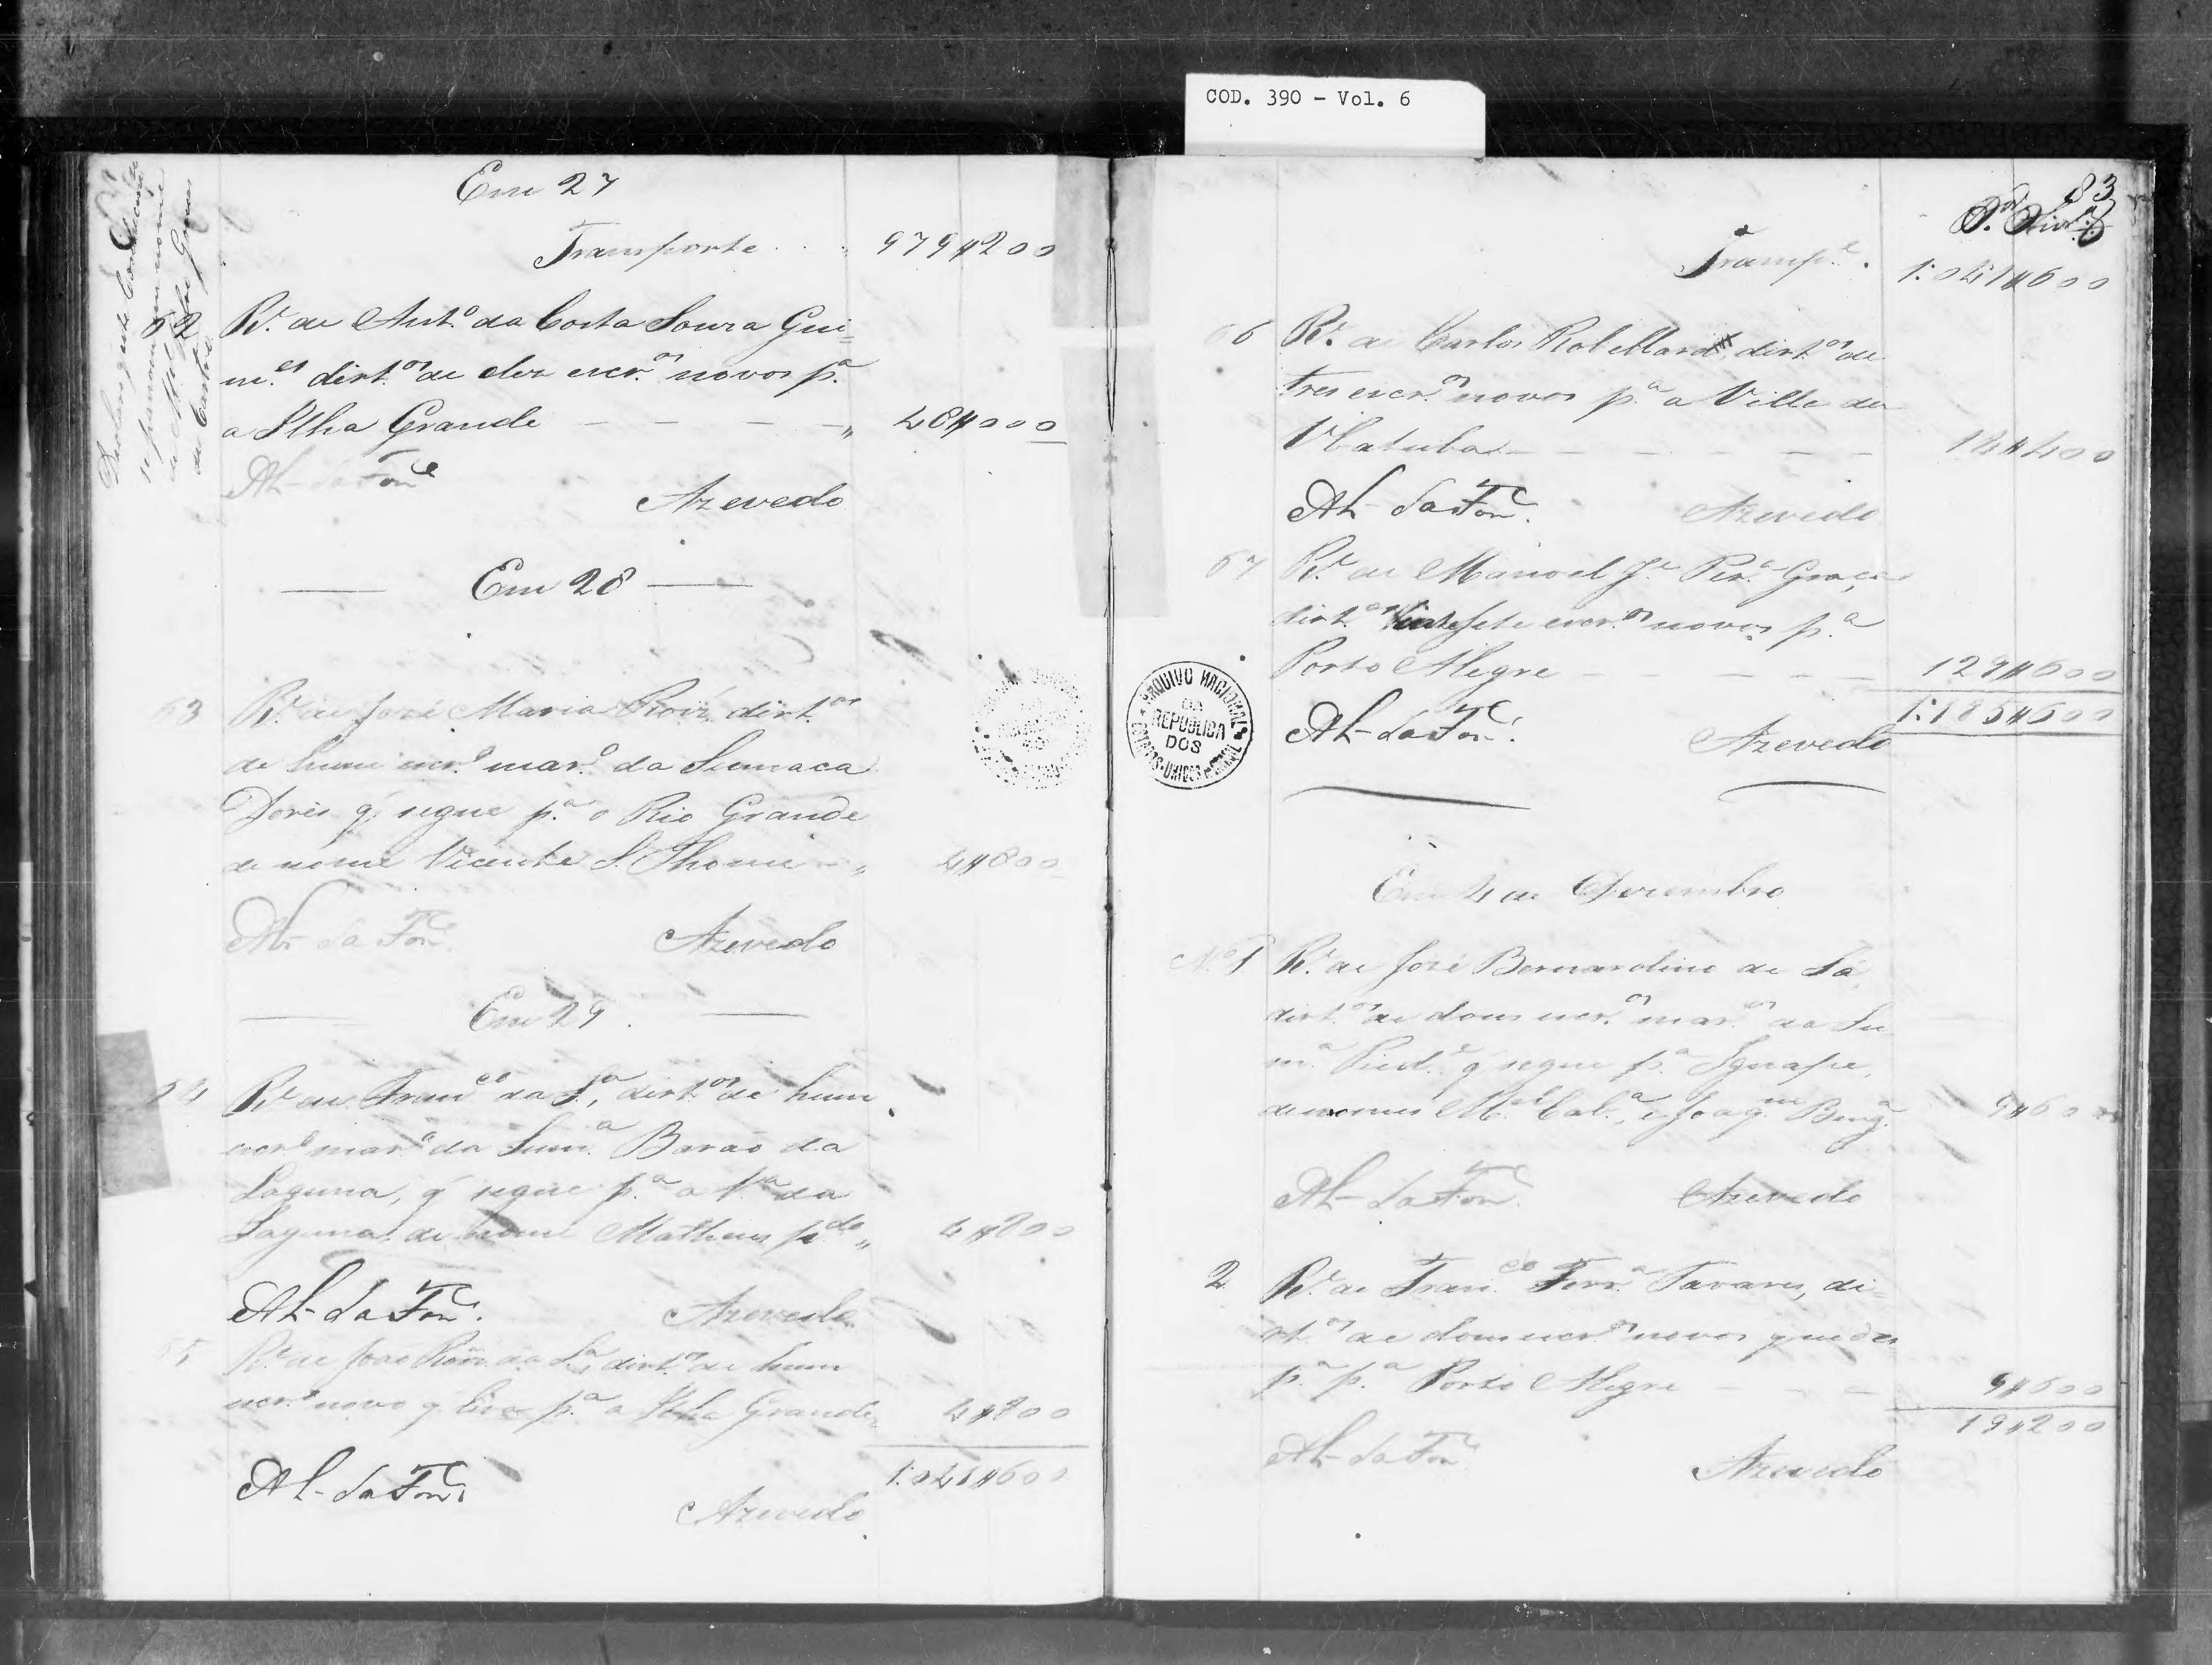 COD. 390 - Vol. 6
Em 27
Transporte 979#200
62 R.e de Ant.o da Costa Souza Gui=
m.es dirt.os de dez escr.os novos p.a
a Ilha Grande 48#000
Al- da Fon.ca
Azevedo
Em 28
63 R.e de José Maria Roiz, dirt.os
de hum escr.o mar.o da Sumaca
Dores q' segue p.a o Rio Grande
de nome Vicente S. Thome 4#800
Al- da Fon.ca
Azevedo
Em 29
64 R.e de Fran.co da S.a, dirt.os de hum
escr.o mar.o da Sum.a Barão da
Laguna, q' segue p.a a V.a da
Laguna, de nome Matheus p.do 4#800
Al- da Fon.ca
Azevedo
65 R.e de João Roiz da S.a, dirt.os de hum
escr.o novo q' leva p.a a Ilha Grande 4#800
1:041#600
Al- da Fon.ca
Azevedo
Declaro q' este
se p.a nome
de
de Castro
83
Transp.e 1:041#600
66 R.e de Carlos dirt.os de
tres escr.os novos p.a a Villa de
Ubatuba 14#400
Al- da Fon.ca
Azevedo
67 R.e de Manoel J.e Per.a Graça
dirt.os vinte sete escr.os novos p.a
Porto Alegre 129#600
1:185#600
Al- da Fon.ca
Azevedo
ARQUIVO NACIONAL
DA
REPUBLICA
DOS
ESTADOS-UNIDOS BRASIL
Em 4 de Dezembro
N.o 1 R.e de José Bernardino de Sá,
dirt.os de dous escr.os mar.os da Su
m.a Pied.e q' segue p.a Iguape,
de nomes M.el Cal.a, e Joaq.m Beng.a 9#600
Al- da Fon.ca
Azevedo
2 R.e de Fran.co Ferr.a Tavares, di=
rt.os de dous escr.os novos
p.a Porto Alegre 9#600
19#200
Al- da Fon.ca
Azevedo